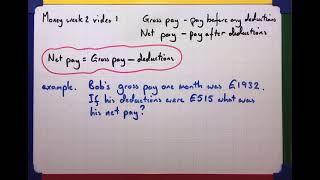 Money week 2 video 1
Gross pay - pay before any deductions
Net pay - pay after deductions
Net pay = Gross pay - deductions
example. Bob's gross pay one month was £1932.
If his deductions were £515 what was
his net pay?